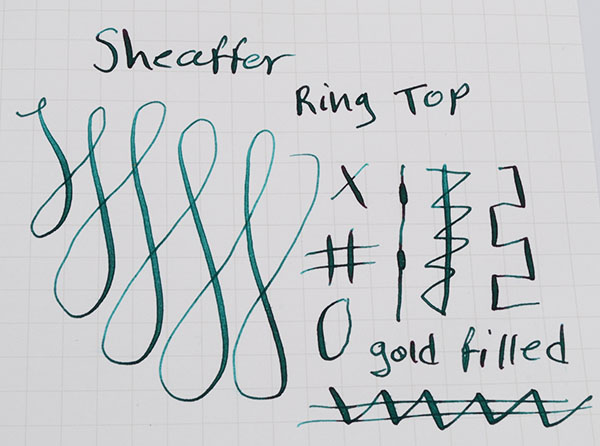 Sheaffer
Ring Top
X
#
O
gold filled